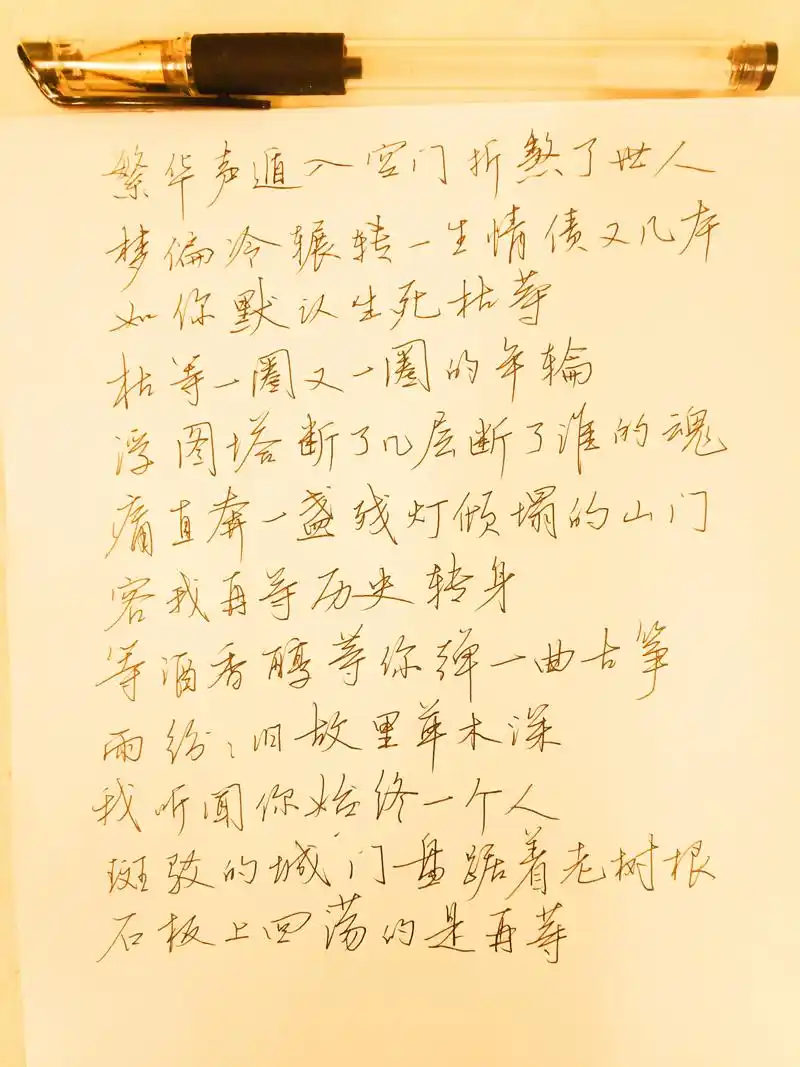 繁华声遁入空门折煞了世人
梦偏冷辗转一生情债又几本
如你默认生死枯等
枯等一圈又一圈的年轮
浮图塔断了几层断了谁的魂
痛直奔一盏残灯倾塌的山门
容我再等历史转身
等酒香醇等你弹一曲古筝
雨纷々旧故里草木深
我听闻你始终一个人
斑驳的城门盘踞着老树根
石板上回荡的是再等